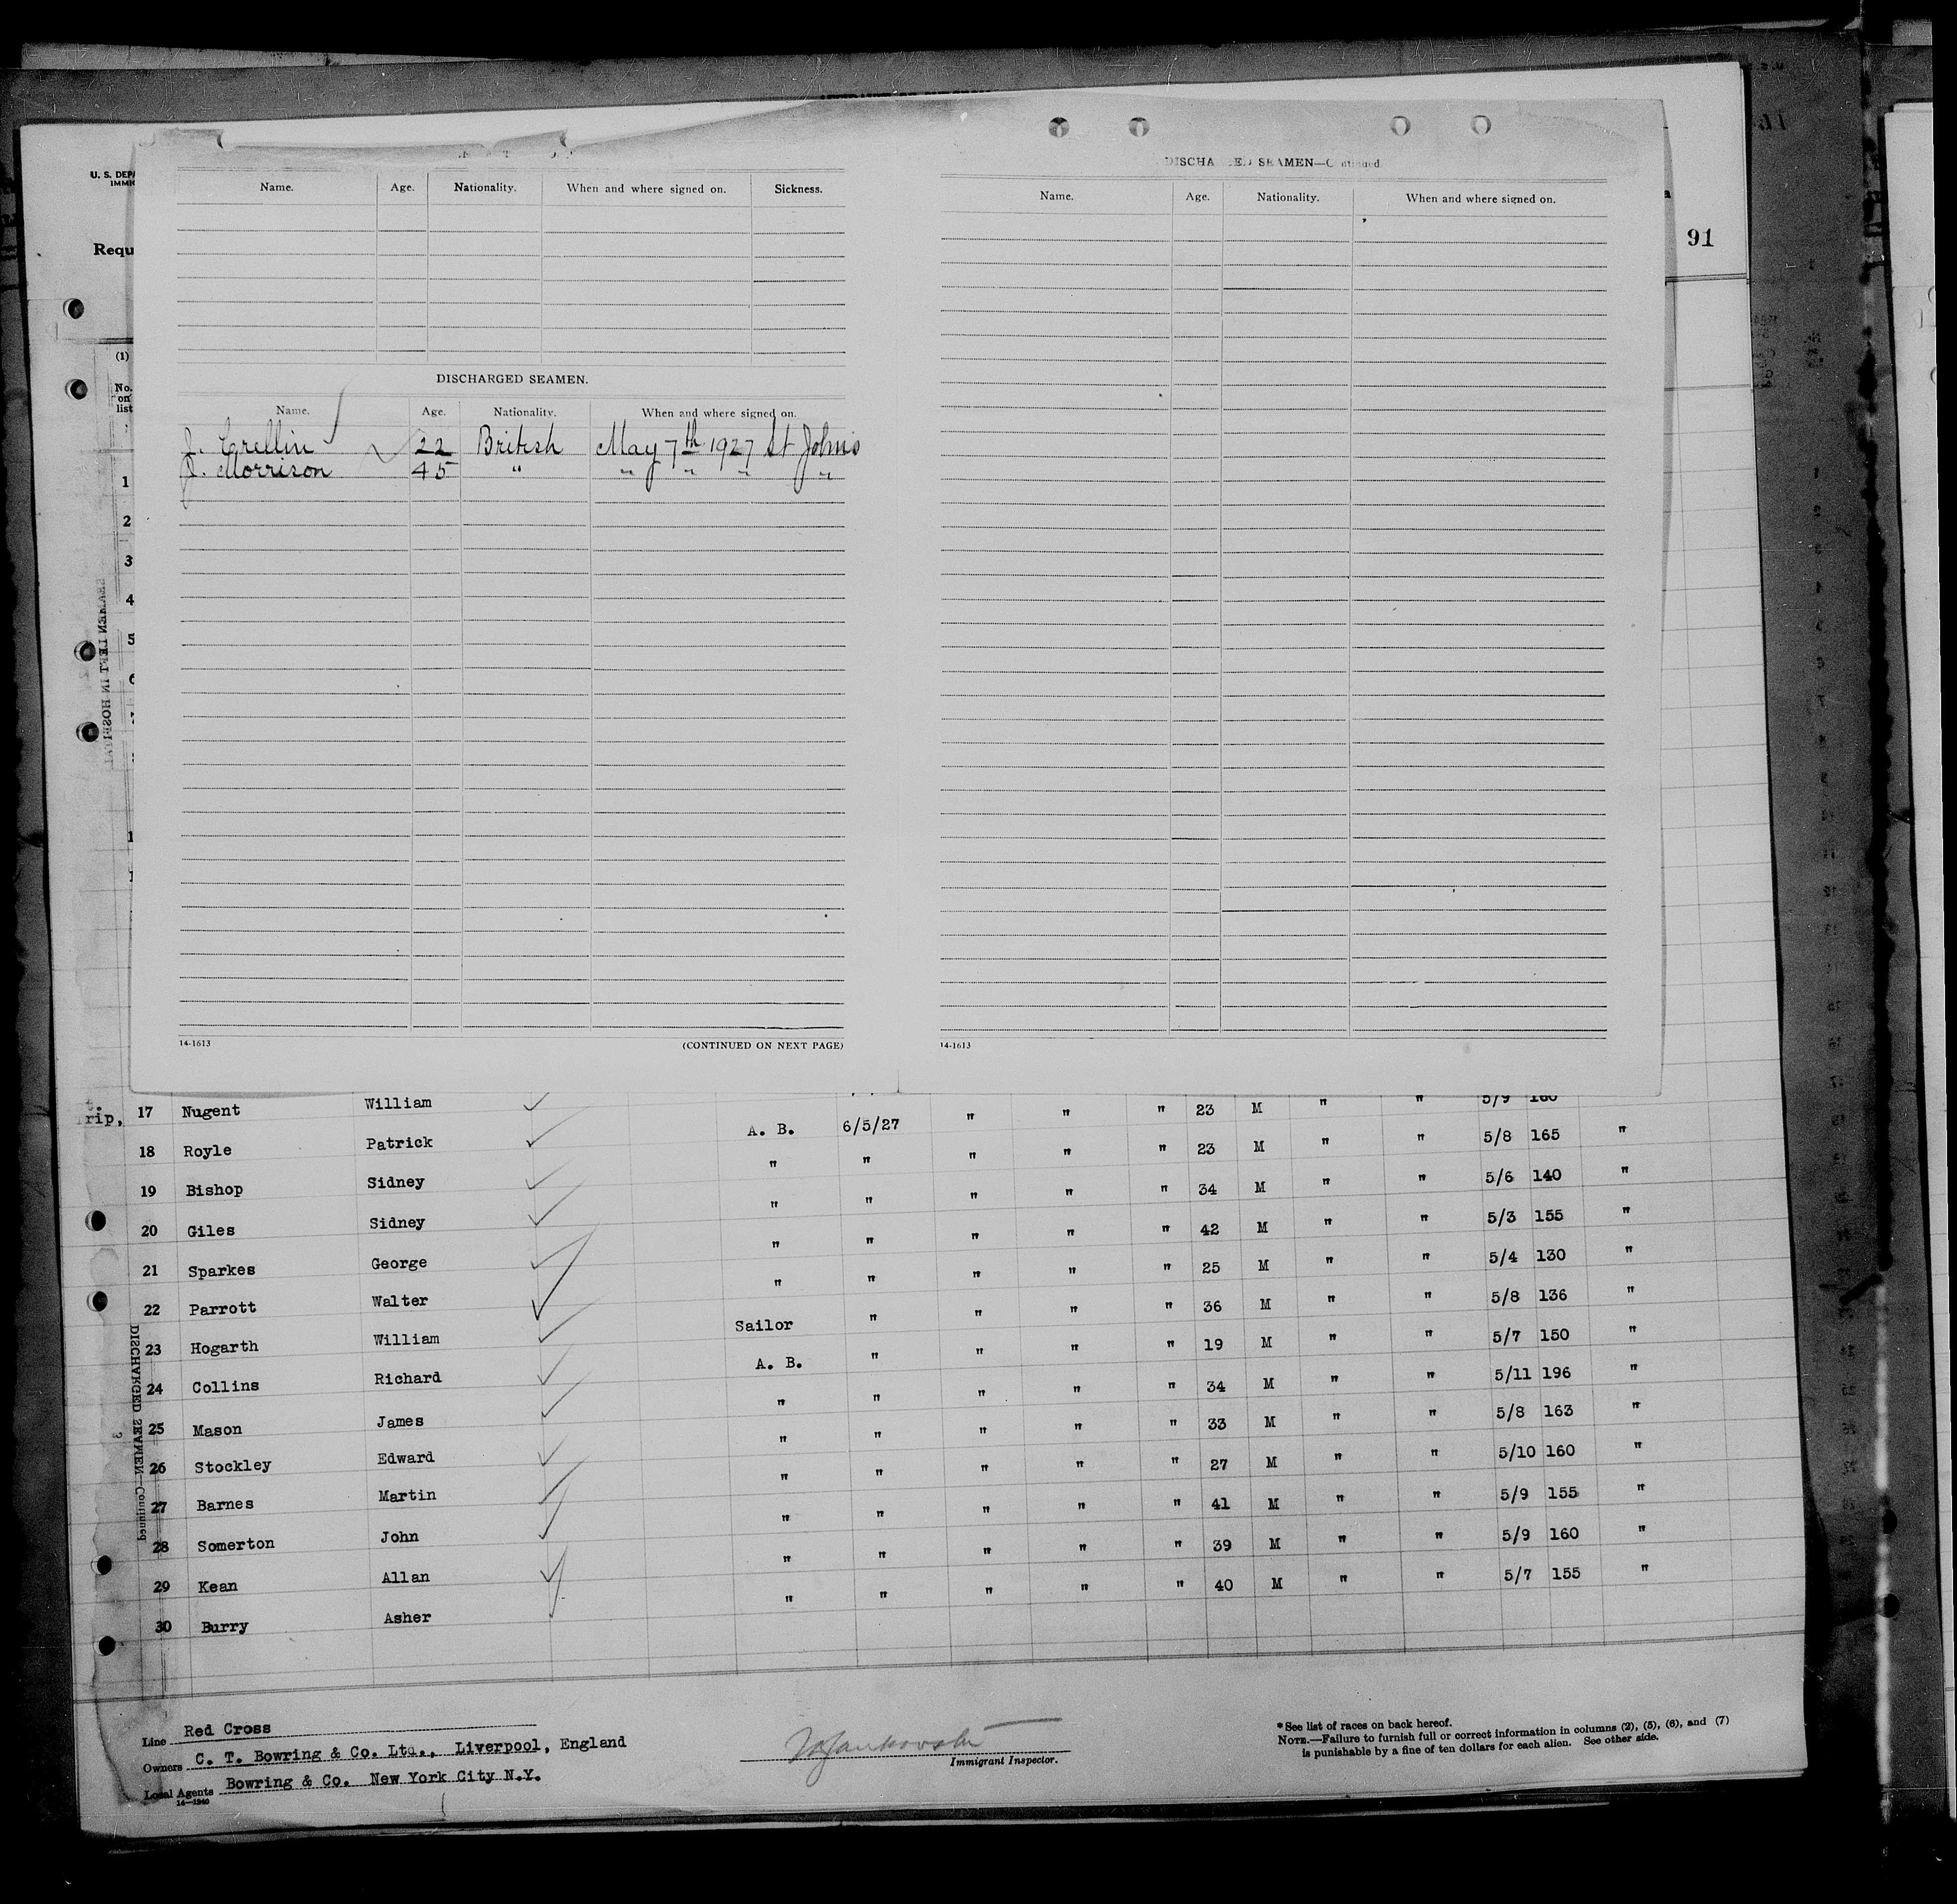 U. S. DEPA
IMMIG
Requ
91
Name. Age. Nationality. When and where signed on. Sickness.
DISCHARGED SEAMEN.
Name. Age. Nationality. When and where signed on.
J. Crellin 22 British May 7th 1927 St Johns
J. Morrison 45 " " " " "
14-1613 (CONTINUED ON NEXT PAGE)
DISCHA ED SEAMEN—C ntinued
Name. Age. Nationality. When and where signed on.
14-1613
(1)
No.
on
list
1
2
3
4
5
SEAMEN LEFT IN HOSPITAL
DISCHARGED SEAMEN—Continued
3
rip,
17 Nugent William " " " 23 M " " 5/9 160
18 Royle Patrick A. B. 6/5/27 " " " 23 M " " 5/8 165 "
19 Bishop Sidney " " " " " 34 M " " 5/6 140 "
20 Giles Sidney " " " " " 42 M " " 5/3 155 "
21 Sparkes George " " " " " 25 M " " 5/4 130 "
22 Parrott Walter " " " " " 36 M " " 5/8 136 "
23 Hogarth William Sailor " " " " 19 M " " 5/7 150 "
24 Collins Richard A. B. " " " " 34 M " " 5/11 196 "
25 Mason James " " " " " 33 M " " 5/8 163 "
26 Stockley Edward " " " " " 27 M " " 5/10 160 "
27 Barnes Martin " " " " " 41 M " " 5/9 155 "
28 Somerton John " " " " " 39 M " " 5/9 160 "
29 Kean Allan " " " " " 40 M " " 5/7 155 "
30 Burry Asher " "
Line Red Cross
Owners C. T. Bowring & Co. Ltd., Liverpool, England
Local Agents Bowring & Co. New York City N.Y.
14—1240
Immigrant Inspector.
*See list of races on back hereof.
NOTE.—Failure to furnish full or correct information in columns (2), (5), (6), and (7)
is punishable by a fine of ten dollars for each alien. See other side.